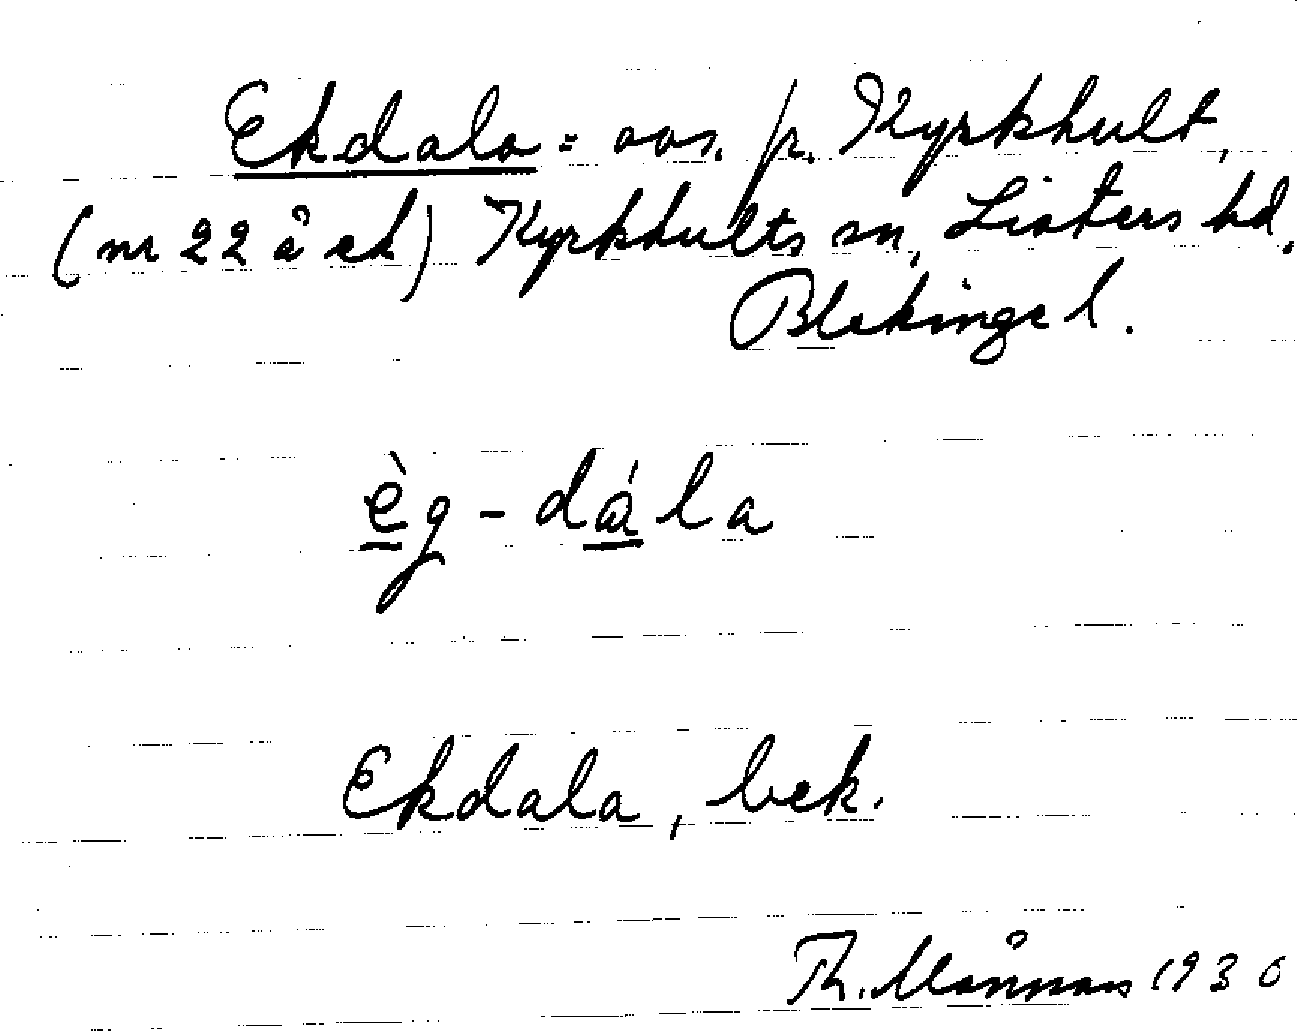 Ekdala = avs. fr. Kyrkhult,
(nr 22 å ek) Kyrkhults sn, Listers hd,
Blekinge l.
èg - dála
Ekdala, bek.
Th. Månsson 1930